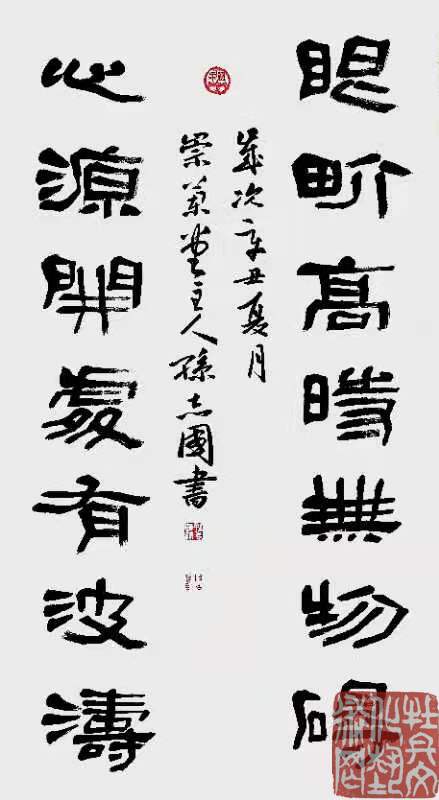 眼畍高時無物碍
歲次辛丑夏月
崇堂主人孫志國書
心源開處有波濤